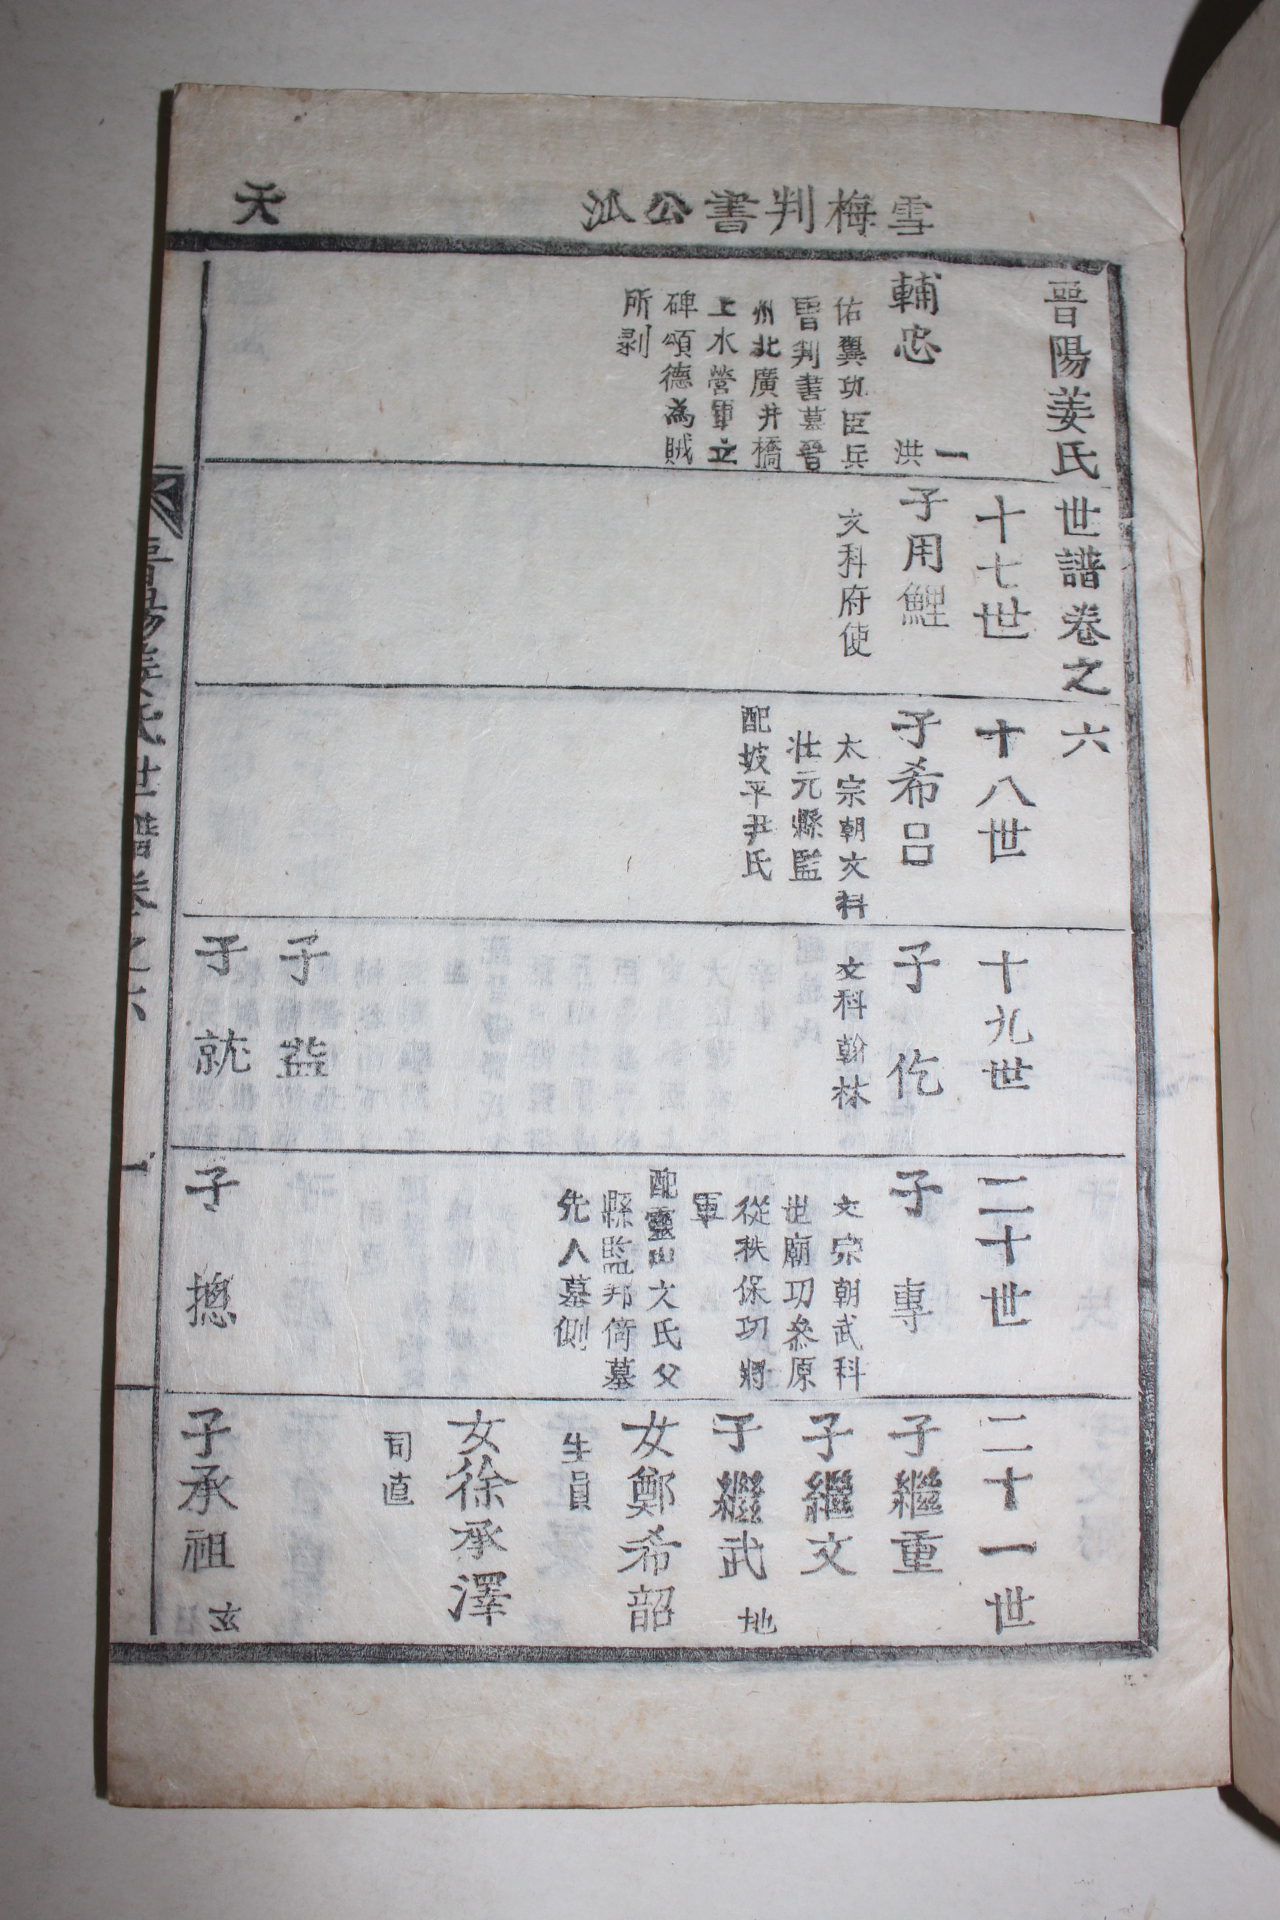 雪梅判書公派
天
晉陽姜氏世譜卷之六
輔忠
一
洪
佑翼功臣兵
曺判書墓晉
州北廣井橋
上水營軍立
碑頌德為賊
所剥
十七世
子用鯉
文科府使
十八世
子希呂
太宗朝文科
壯元縣監
配坡平尹氏
十九世
子仡
文科翰林
子益
子就
二十世
子專
文宗朝武科
世廟功叅原
從秩保功將
軍
配靈山文氏父
縣監邦衛墓
先人墓側
子摠
二十一世
子繼重
子繼文
子繼武
地
女鄭希韶
生員
女徐承澤
司直
子承祖
玄
晉陽姜氏世譜卷之六
一